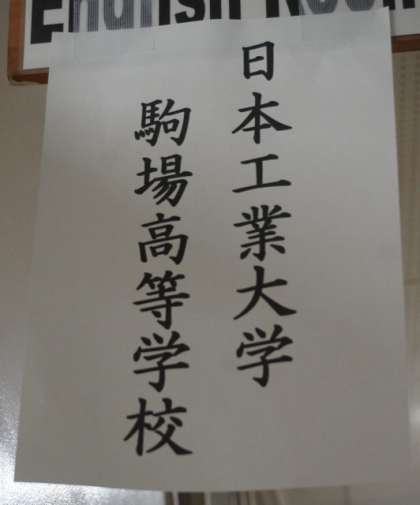 English Room
日本工業大学
駒場高等学校